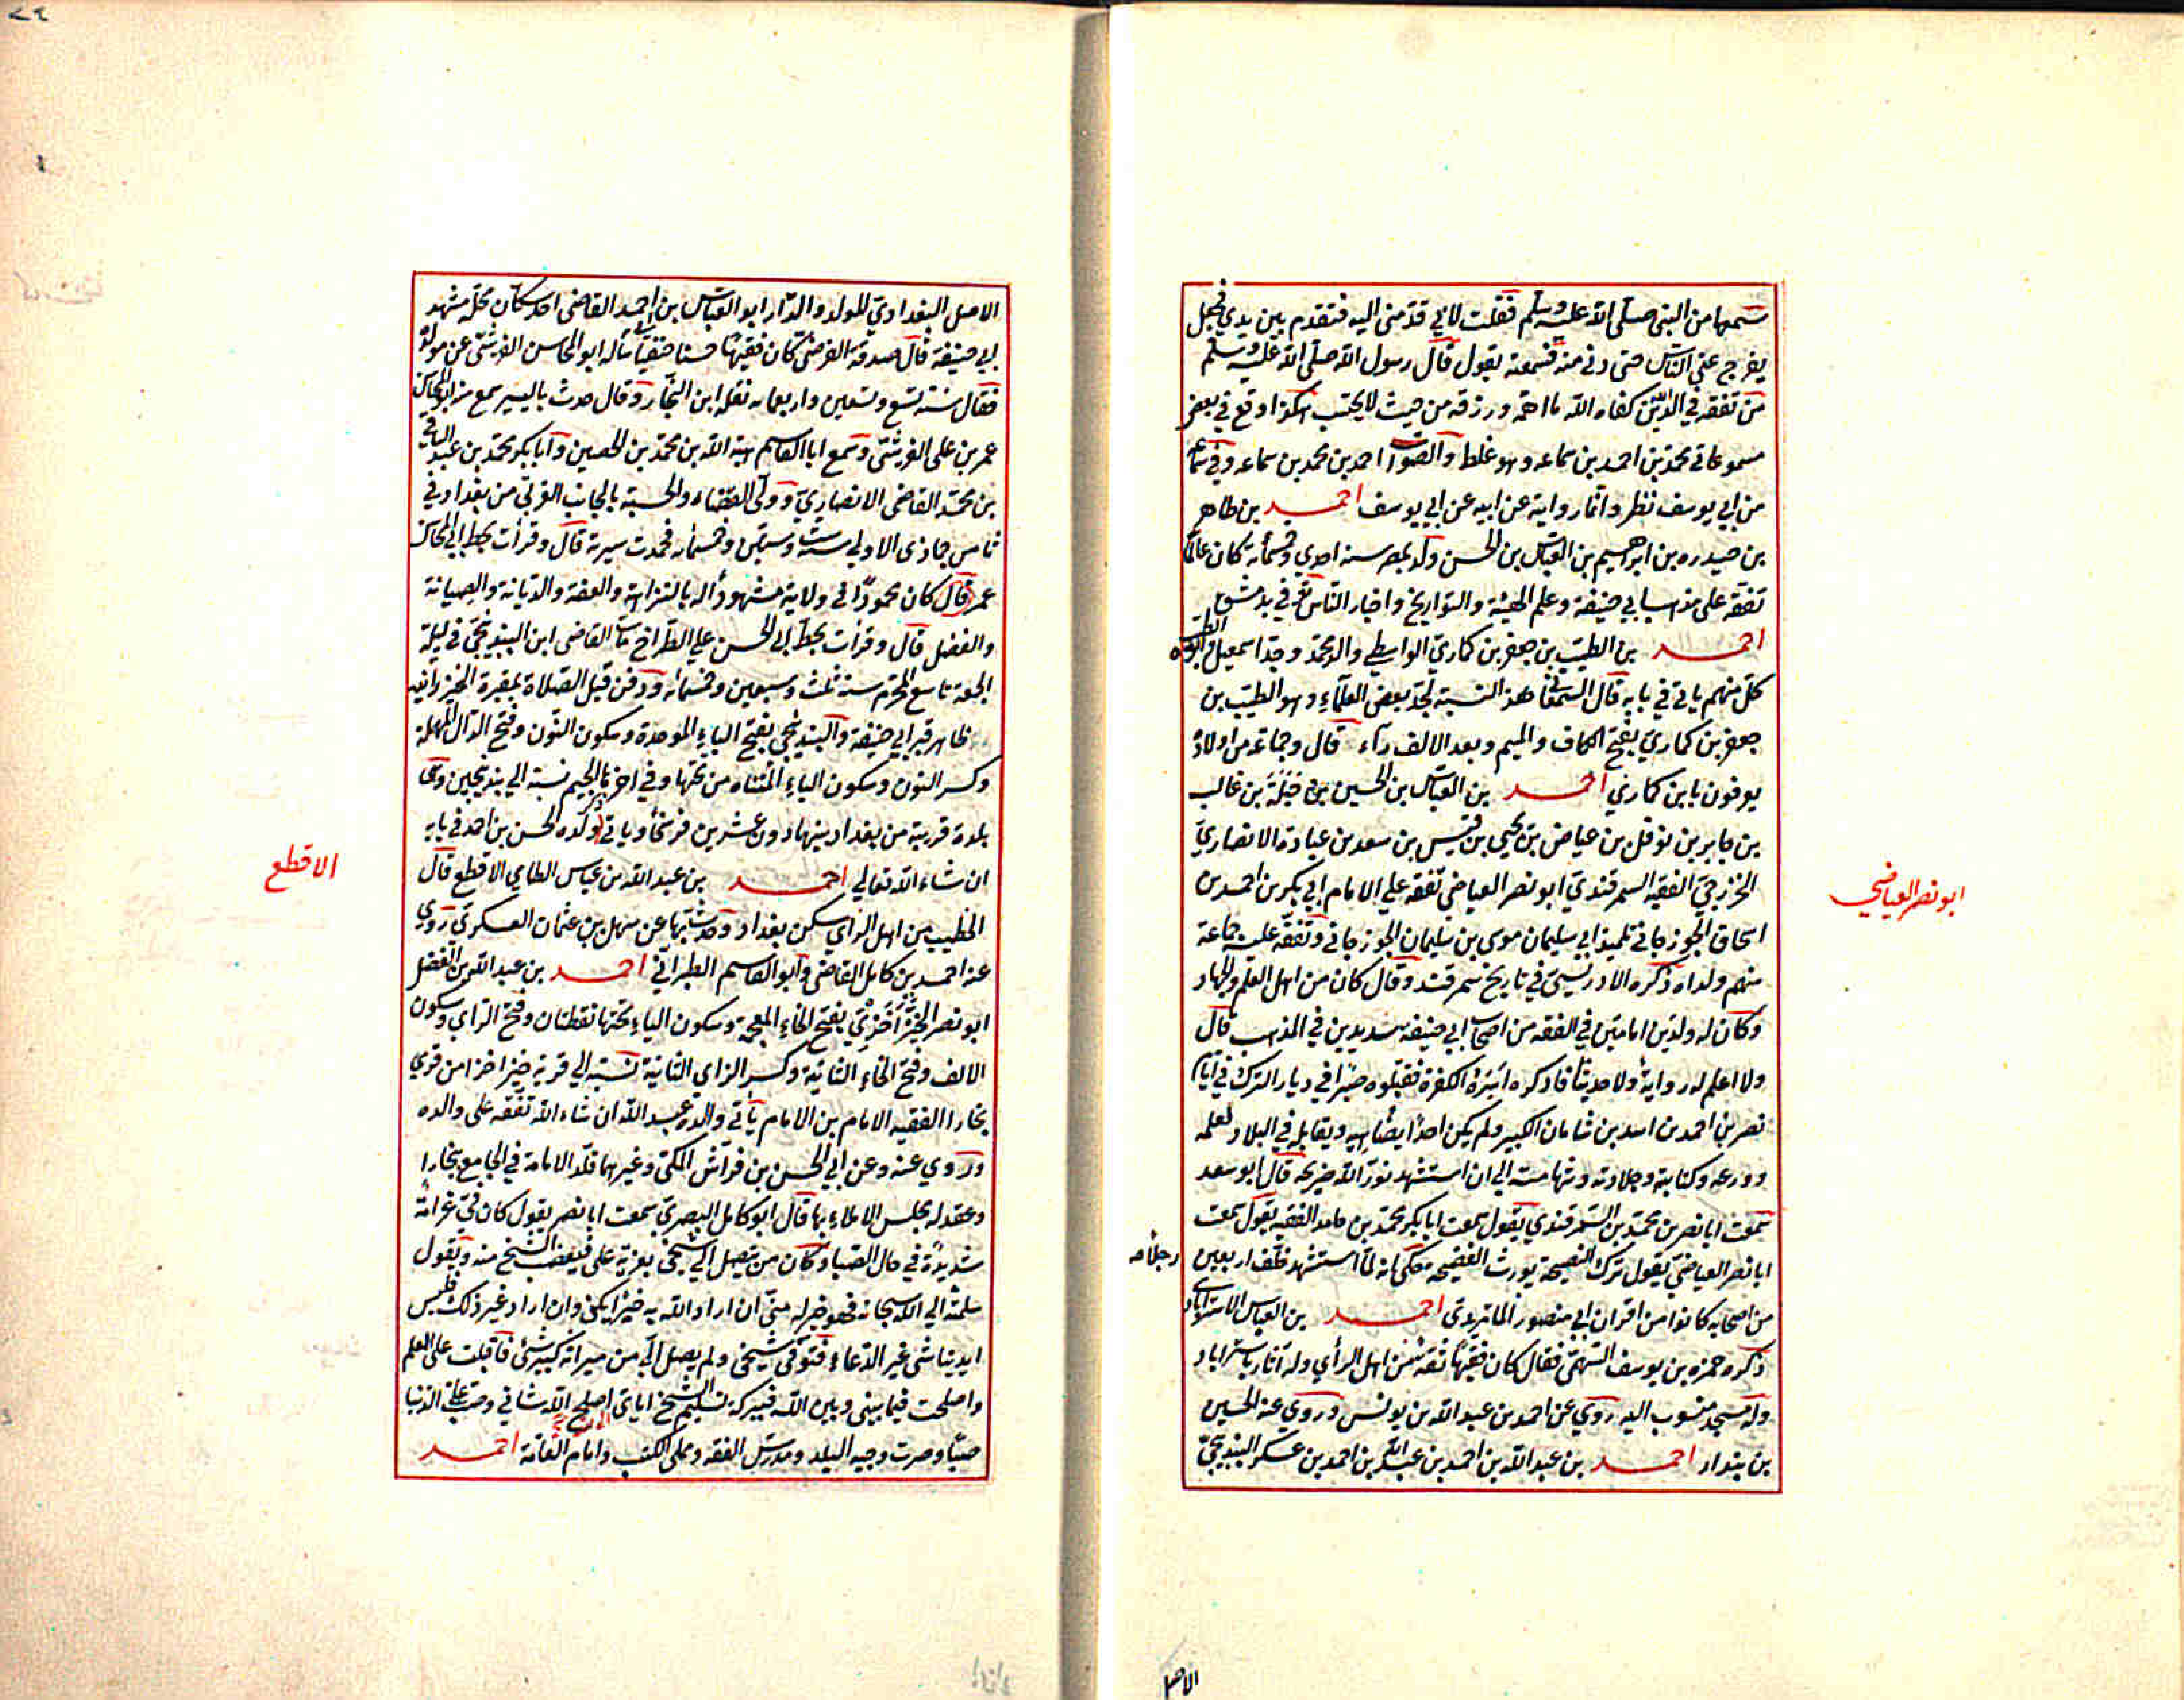 سمعها من النبي صلى الله عليه وسلم فقلت لابي قدمني اليه فتقدم بين يدي فجعل
يفرج عني الناس حتى دنى منه فسمعته يقول قال رسول الله صلى الله عليه وسلم
من تفقه في الدين كفاه الله ما اهمه ورزقه من حيث لا يحتسب هكذا وقع في بعض
مسموعاتي محمد بن احمد بن سماعه وهو غلط والصواب احمد بن محمد بن سماعه وفي سماعه
من ابي يوسف نظر وانما روايته عن ابيه عن ابي يوسف احمد بن طاهر
بن حيدره بن ابرهيم بن العباس بن الحسن ولد بمصر سنه احدي وخمسمأية كان عالما
تفقه على مذهب ابي حنيفة وعلم الهيئة والتواريخ واخبار الناس توفي بدمشق
احمد بن الطيب بن جعفر بن كماري الواسطي والد محمد وجد اسمعيل
كل منهم ياتي في بابه قال السمعاني هذا النسبة لجد بعض العلماء وهو الطيب بن
جعفر بن كماري بفتح الكاف والميم وبعد الالف راء قال وجماعة من اولاده
يعرفون بابن كماري احمد بن العباس بن الحسين بن جبلة بن غالب
بن جابر بن نوفل بن عياض بن يحيى بن قيس بن سعد بن عبادة الانصاري
الخزرجي الفقيه السمرقندي ابو نصر العياضي تفقه علي الامام ابي بكر بن احمد بن
اسحاق الجوزجاني تلميذ ابي سليمان موسى بن سليمان الجوزجاني وتفقه عليه جماعة
منهم ولداه ذكره الادريسي في تاريخ سمرقند وقال كان من اهل العلم والجهاد
وكان له ولدين امامين في الفقه من اصحاب ابي حنيفة سديدين في المذهب قال
ولا اعلم له رواية ولا حديثا فاذكره اسره الكفرة فقتلوه صبرا في ديار الترك في ايام
نصر بن احمد بن اسد بن شامان الكبير ولم يكن احدا يضاهيه ويقابله في البلاد لعلمه
وورعه وكتابته وجلادته وشهامته الي ان استشهد نور الله ضريحه قال ابو سعد
سمعت ابا نصر بن محمد بن السمرقندي يقول سمعت ابا بكر محمد بن حامد الفقيه يقول سمعت
ابا نصر العياضي يقول ترك النصيحة يورث الفضيحة حكي انه لما استشهد خلف اربعين رجلا
من اصحابه كانوا من اقران ابي منصور الماتريدي احمد بن العباس الاستراباد
ذكره حمزه بن يوسف السهمي فقال كان فقيها ثقة من اهل الرأي وله آثار باستراباد
وله مسجد منسوب اليه روي عن احمد بن عبد الله بن يونس وروي عنه الحسين
بن بندار احمد بن عبد الله بن احمد بن عبد الله بن احمد بن عسكر البندنيجي
ابو نصر العياضي
الاصل
الاصل البغدادي المولد والدار ابو العباس بن احمد القاضي احد سكان محلة مشهد
ابي حنيفة قال صدقة الفرضي كان فقيها حسنا حنفيا سأله ابو المحاسن القرشي عن مولده
فقال سنة تسع وتسعين واربعمايه نقله ابن النجار وقال حدث باليسير سمع منه ابو المحاسن
عمر بن علي القرشي وسمع ابا القاسم هبة الله بن محمد بن الحصين وابا بكر محمد بن عبد الباقي
بن محمد القاضي الانصاري وولى القضاء والحسبة بالجانب الغربي من بغداد في
ثامن جمادى الاولى سنة ست وستين وخمسمأيه فحمدت سيرته قال وقرأت بخط ابي المحاسن
عمر قال كان محمودا في ولايته مشهودا له بالنزاهة والعفة والديانة والصيانة
والفضل قال وقرأت بخط ابي الحسن علي الطراح مات القاضي ابن البندنيجي في ليلة
الجمعة تاسع المحرم سنة ثلث وسبعين وخمسمأيه ودفن قبل الصلاة بمقبرة الخيزرانيه
ظاهر قبر ابي حنيفة والبندنيجي بفتح الباء الموحدة وسكون النون وفتح الدال المهملة
وكسر النون وسكون الياء المثناه من تحتها وفي آخرها الجيم نسبة الي بندنيجين وهي
بلدة قريبة من بغداد بينهما دون عشرين فرسخا وياتي ذكر ولده الحسن بن احمد في بابه
ان شاء الله تعالى احمد بن عبد الله بن عباس الطاي الاقطع قال
الخطيب من اهل الراي سكن بغداد وحدث بها عن سهل بن عثمان العسكري روي
عنه احمد بن كامل القاضي وابو القاسم الطبراني احمد بن عبد الله بن الفضل
ابو نصر الخيزاخزي بفتح الخاء المعجمة وسكون الياء تحتها نقطتان وفتح الزاي وسكون
الالف وفتح الخاء الثانية وكسر الزاي الثانية نسبته الي قرية خيزاخزا من قري
بخارا الفقيه الامام بن الامام يأتي والده عبد الله ان شاء الله تفقه على والده
وروي عنه وعن ابي الحسن بن فراش المكي وغيرهما قلد الامامة في الجامع بخارا
وعقد له مجلس الاملاء بها قال ابو كامل البصري سمعت ابا نصر يقول كان في غرامة
شديدة في حال الصبا وكان من يتصل الي شيخي يغريه علي فيغضب الشيخ منه ويقول
سلمته الي الله سبحانه فهو خير له مني ان اراد الله به خيرا يكن وان اراد غير ذلك فليس
ايدينا شي غير الدعاء فتوفي شيخي ولم يصل الي من ميراثه كبير شئ فاقبلت على العلم
واصلحت فيما بيني وبين الله فببركة تسليم الشيخ اياي اصلح الله شاني وصب علي الدنيا
صبا وصرت وجيه البلد ومدرس الفقه ومملي الكتب وامام العامة احمد
الاقطع